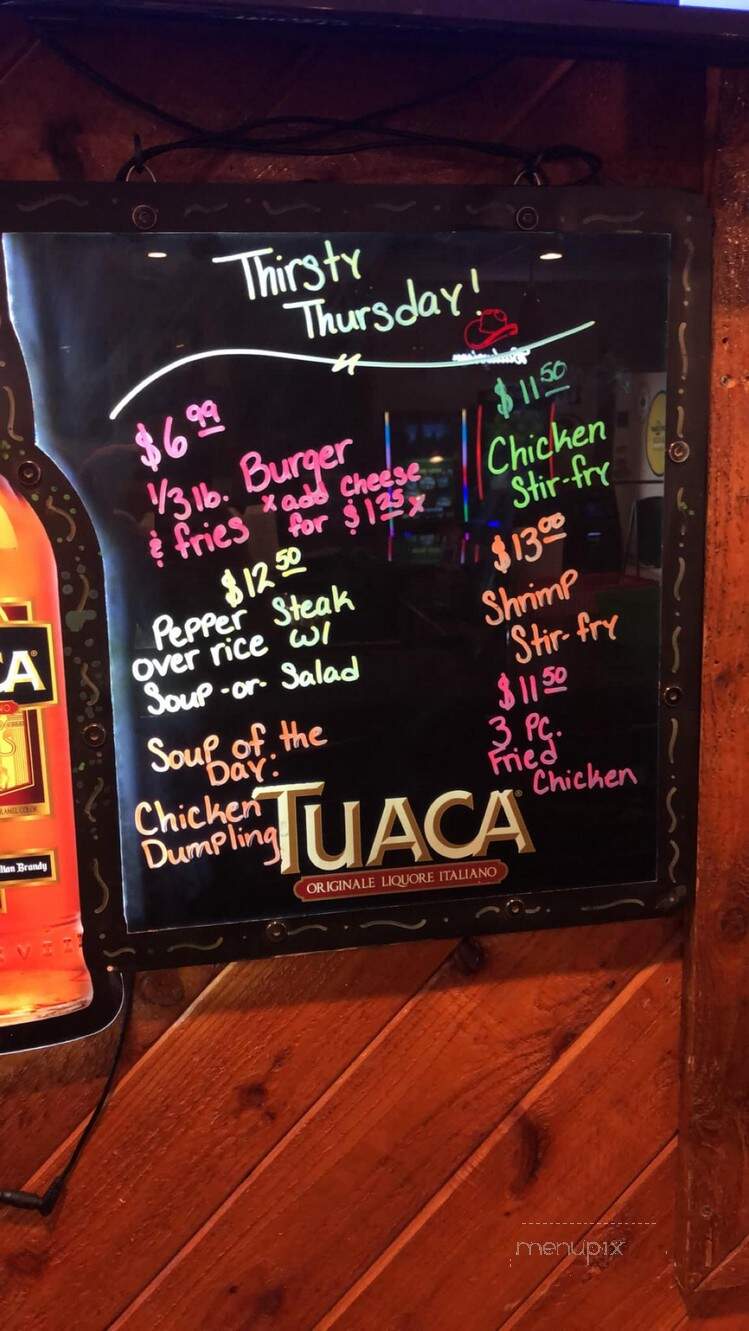 Thirsty
Thursday!
$6 99
1/3 lb. Burger
& fries x add Cheese
for $1 25 x
$12 50
Pepper Steak
over rice w/
Soup -or- Salad
Soup of the
Day:
Chicken
Dumpling
$11 50
Chicken
Stir-fry
$13 00
Shrimp
Stir-fry
$11 50
3 Pc.
Fried
Chicken
TUACA
ORIGINALE LIQUORE ITALIANO
CA
lian Brandy
menupix